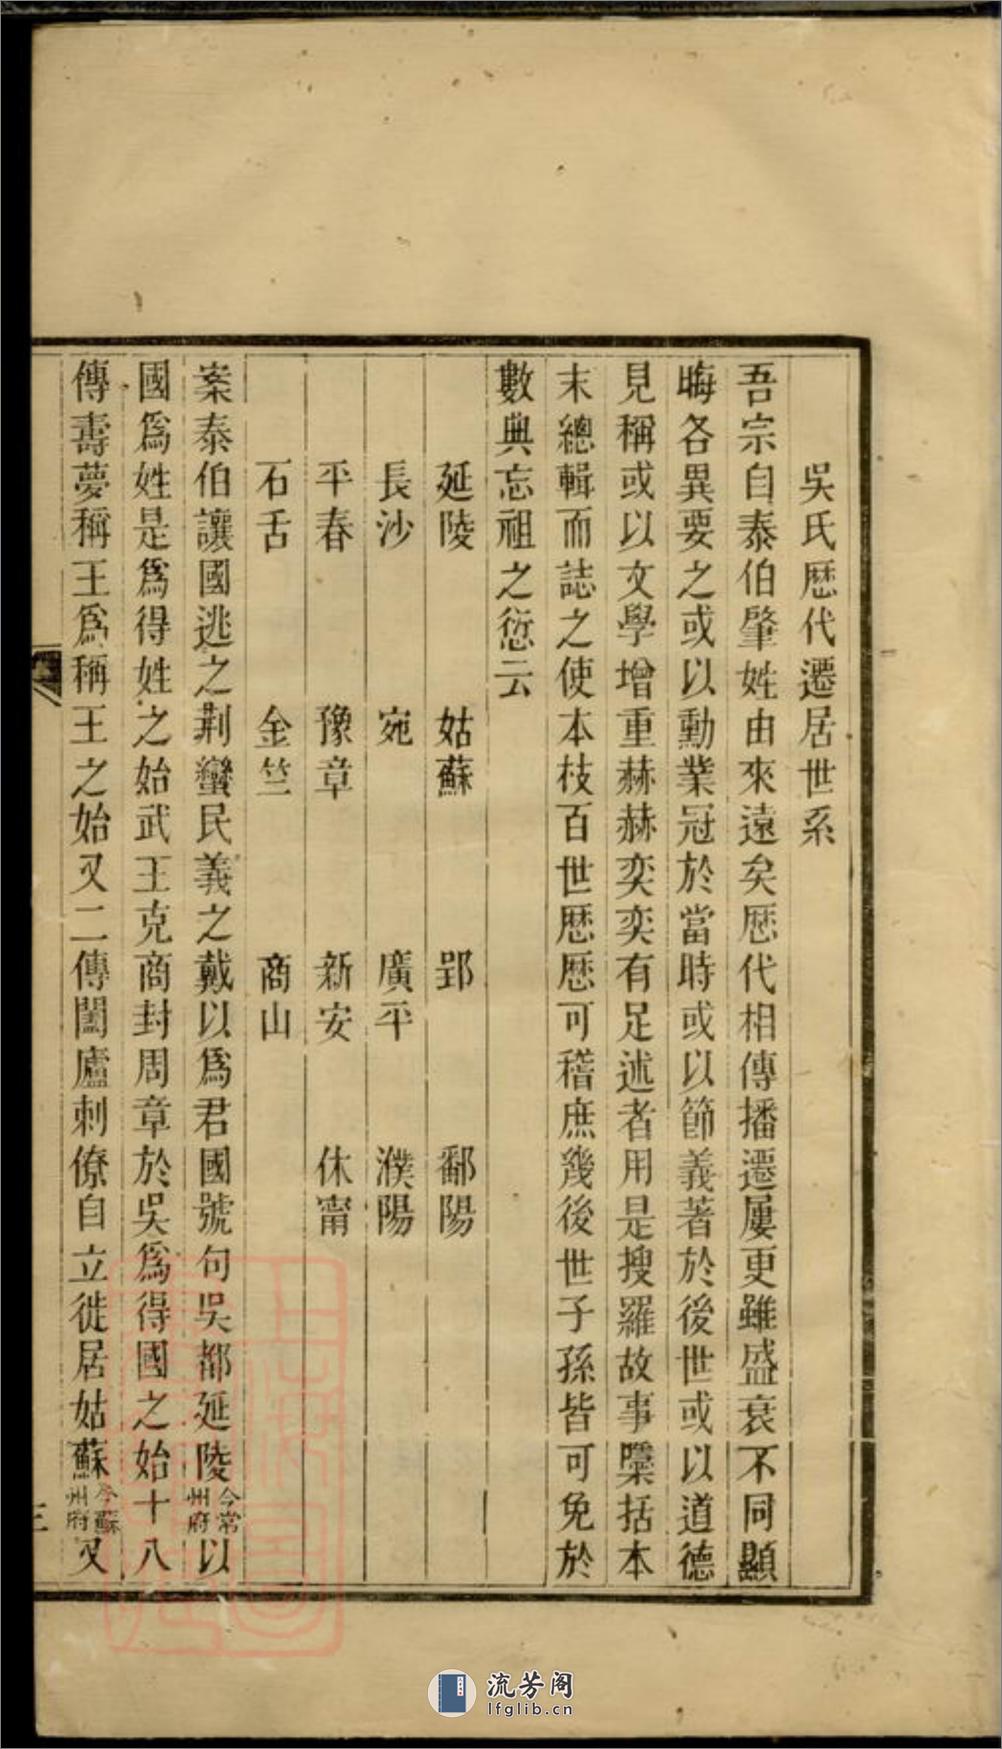 吳氏歴代遷居世系
吾宗自泰伯肇姓由來遠矣歴代相傳播遷屢更雖盛衰不同顯
晦各異要之或以勳業冠於當時或以節義著於後世或以道德
見稱或以文學增重赫赫奕奕有足述者用是搜羅故事檃括本
末總輯而誌之使本枝百世歴歴可稽庶幾後世子孫皆可免於
數典忘祖之愆云
延陵 姑蘇 郢 鄱陽
長沙 宛 廣平 濮陽
平春 豫章 新安 休甯
石舌 金竺 商山
案泰伯讓國逃之荆蠻民義之戴以爲君國號句吳都延陵今常州府以
國爲姓是爲得姓之始武王克商封周章於吳爲得國之始十八
傳壽夢稱王爲稱王之始又二傳闔廬刺僚自立徙居姑蘇今蘇州府又
三
流芳阁
lfglib.cn